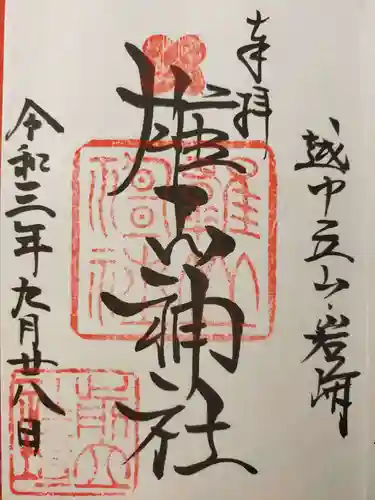 越中立山岩峅
奉拝
雄山神社
令和三年九月廿八日